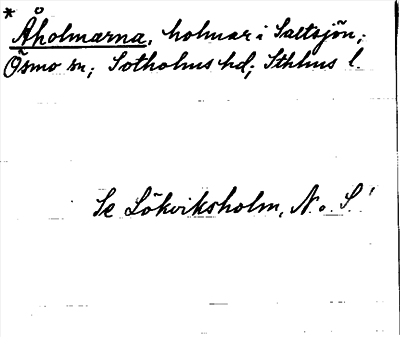 * Åholmarna, holmar i Saltsjön;
Ösmo sn; Sotholms hd; Sthlms l.
Se Lökviksholm, N. o. S.!